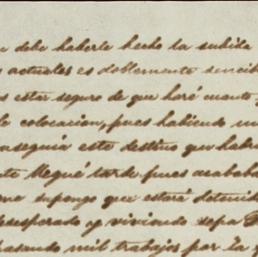 debe haberle hecho la subida
actuales es doblemente sensib
estar seguro de que haré cuanto
colocacion, pues habiendo
nseguia este destino que habr
llegué tarde pues acababa
supongo que estará detenida
desesperado y viviendo sepa
pasando mil trabajos por la